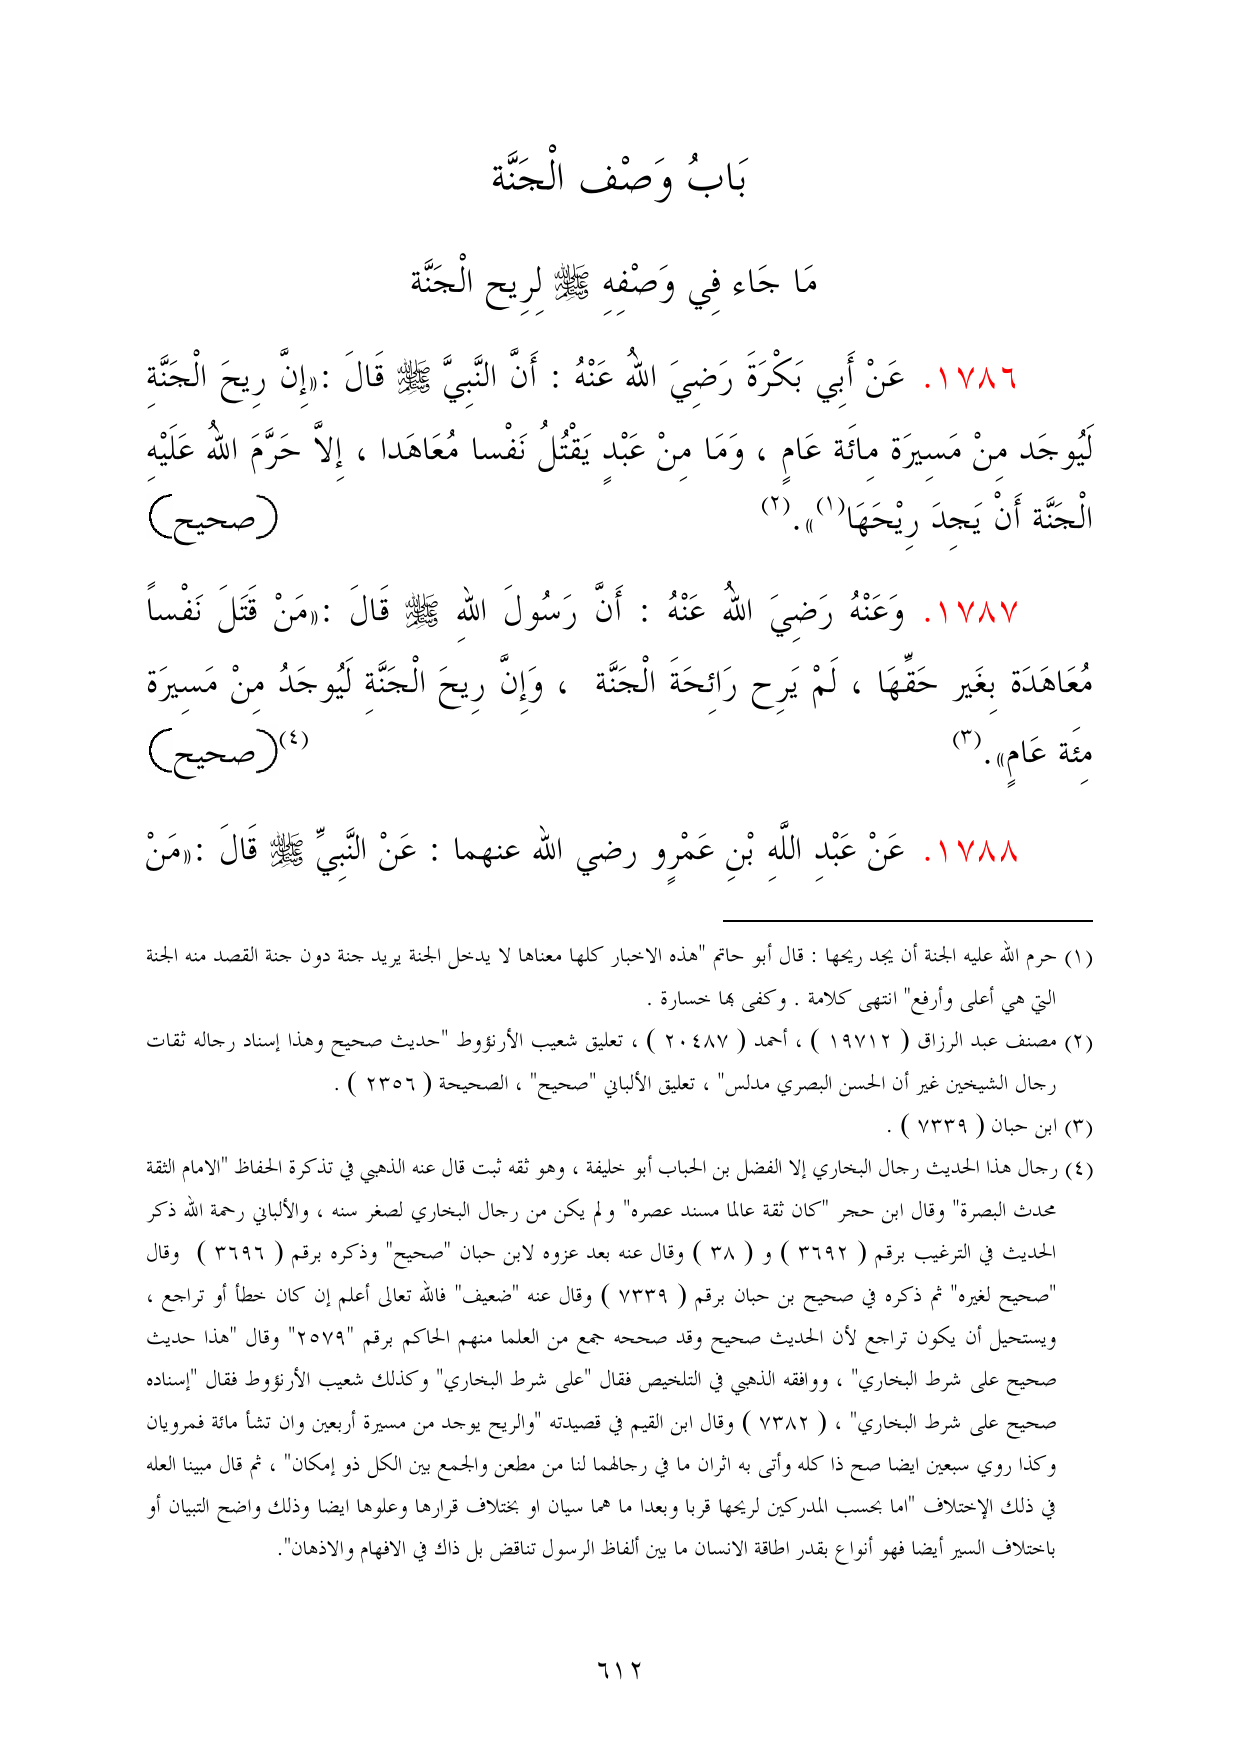 بَابُ وَصْف الْجَنَّة
مَا جَاء فِي وَصْفِهِ ﷺ لِرِيح الْجَنَّة
١٧٨٦. عَنْ أَبِي بَكْرَةَ رَضِيَ اللهُ عَنْهُ : أَنَّ النَّبِيَّ ﷺ قَالَ :«إِنَّ رِيحَ الْجَنَّةِ
لَيُوجَد مِنْ مَسِيرَة مِائَة عَامٍ ، وَمَا مِنْ عَبْدٍ يَقْتُلُ نَفْسا مُعَاهَدا ، إِلاَّ حَرَّمَ اللهُ عَلَيْهِ
الْجَنَّة أَنْ يَجِدَ رِيْحَهَا(١)».(٢) (صحيح)
١٧٨٧. وَعَنْهُ رَضِيَ اللهُ عَنْهُ : أَنَّ رَسُولَ اللهِ ﷺ قَالَ :«مَنْ قَتَلَ نَفْساً
مُعَاهَدَة بِغَير حَقِّهَا ، لَمْ يَرِح رَائِحَةَ الْجَنَّة ، وَإِنَّ رِيحَ الْجَنَّةِ لَيُوجَدُ مِنْ مَسِيرَة
مِئَة عَامٍ».(٣) (صحيح)(٤)
١٧٨٨. عَنْ عَبْدِ اللَّهِ بْنِ عَمْرٍو رضي الله عنهما : عَنْ النَّبِيِّ ﷺ قَالَ :«مَنْ
(١) حرم الله عليه الجنة أن يجد ريحها : قال أبو حاتم "هذه الاخبار كلها معناها لا يدخل الجنة يريد جنة دون جنة القصد منه الجنة
التي هي أعلى وأرفع" انتهى كلامة . وكفى بها خسارة .
(٢) مصنف عبد الرزاق ( ١٩٧١٢ ) ، أحمد ( ٢٠٤٨٧ ) ، تعليق شعيب الأرنؤوط "حديث صحيح وهذا إسناد رجاله ثقات
رجال الشيخين غير أن الحسن البصري مدلس" ، تعليق الألباني "صحيح" ، الصحيحة ( ٢٣٥٦ ) .
(٣) ابن حبان ( ٧٣٣٩ ) .
(٤) رجال هذا الحديث رجال البخاري إلا الفضل بن الحباب أبو خليفة ، وهو ثقه ثبت قال عنه الذهبي في تذكرة الحفاظ "الامام الثقة
محدث البصرة" وقال ابن حجر "كان ثقة عالما مسند عصره" ولم يكن من رجال البخاري لصغر سنه ، والألباني رحمة الله ذكر
الحديث في الترغيب برقم ( ٣٦٩٢ ) و ( ٣٨ ) وقال عنه بعد عزوه لابن حبان "صحيح" وذكره برقم ( ٣٦٩٦ ) وقال
"صحيح لغيره" ثم ذكره في صحيح بن حبان برقم ( ٧٣٣٩ ) وقال عنه "ضعيف" فالله تعالى أعلم إن كان خطأ أو تراجع ،
ويستحيل أن يكون تراجع لأن الحديث صحيح وقد صححه جمع من العلما منهم الحاكم برقم "٢٥٧٩" وقال "هذا حديث
صحيح على شرط البخاري" ، ووافقه الذهبي في التلخيص فقال "على شرط البخاري" وكذلك شعيب الأرنؤوط فقال "إسناده
صحيح على شرط البخاري" ، ( ٧٣٨٢ ) وقال ابن القيم في قصيدته "والريح يوجد من مسيرة أربعين وان تشأ مائة فمرويان
وكذا روي سبعين ايضا صح ذا كله وأتى به اثران ما في رجالهما لنا من مطعن والجمع بين الكل ذو إمكان" ، ثم قال مبينا العله
في ذلك الإختلاف "اما بحسب المدركين لريحها قربا وبعدا ما هما سيان او بختلاف قرارها وعلوها ايضا وذلك واضح التبيان أو
باختلاف السير أيضا فهو أنواع بقدر اطاقة الانسان ما بين ألفاظ الرسول تناقض بل ذاك في الافهام والاذهان".
٦١٢